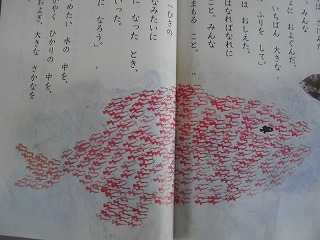 はさけんだ
みんな
よに およぐんだ。
いちばん 大きな
ふりを して。」
は おしえた。
はなればなれに
こと。みんな
まもる こと。
一ぴきの
なみたいに
に なった とき、
いった。
に なろう。」
めたい 水の 中を、
やく ひかりの 中を、
およぎ、大きな さかなを